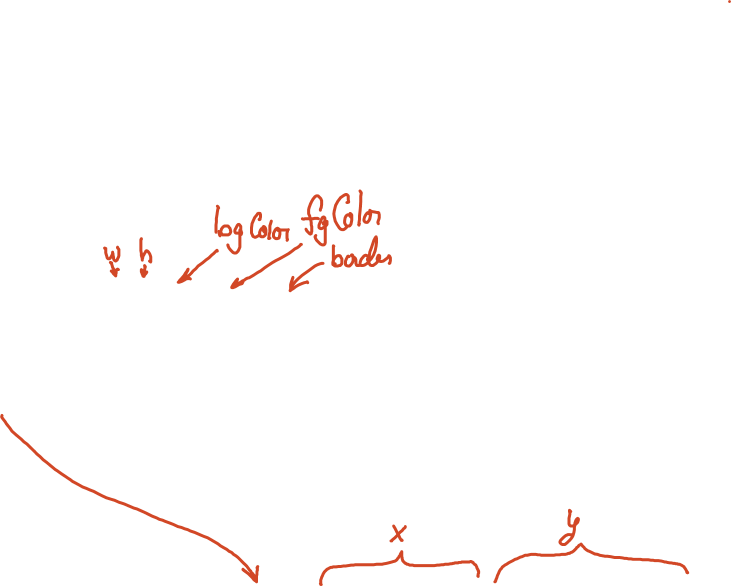 bgColor fgColor
w h border
x y